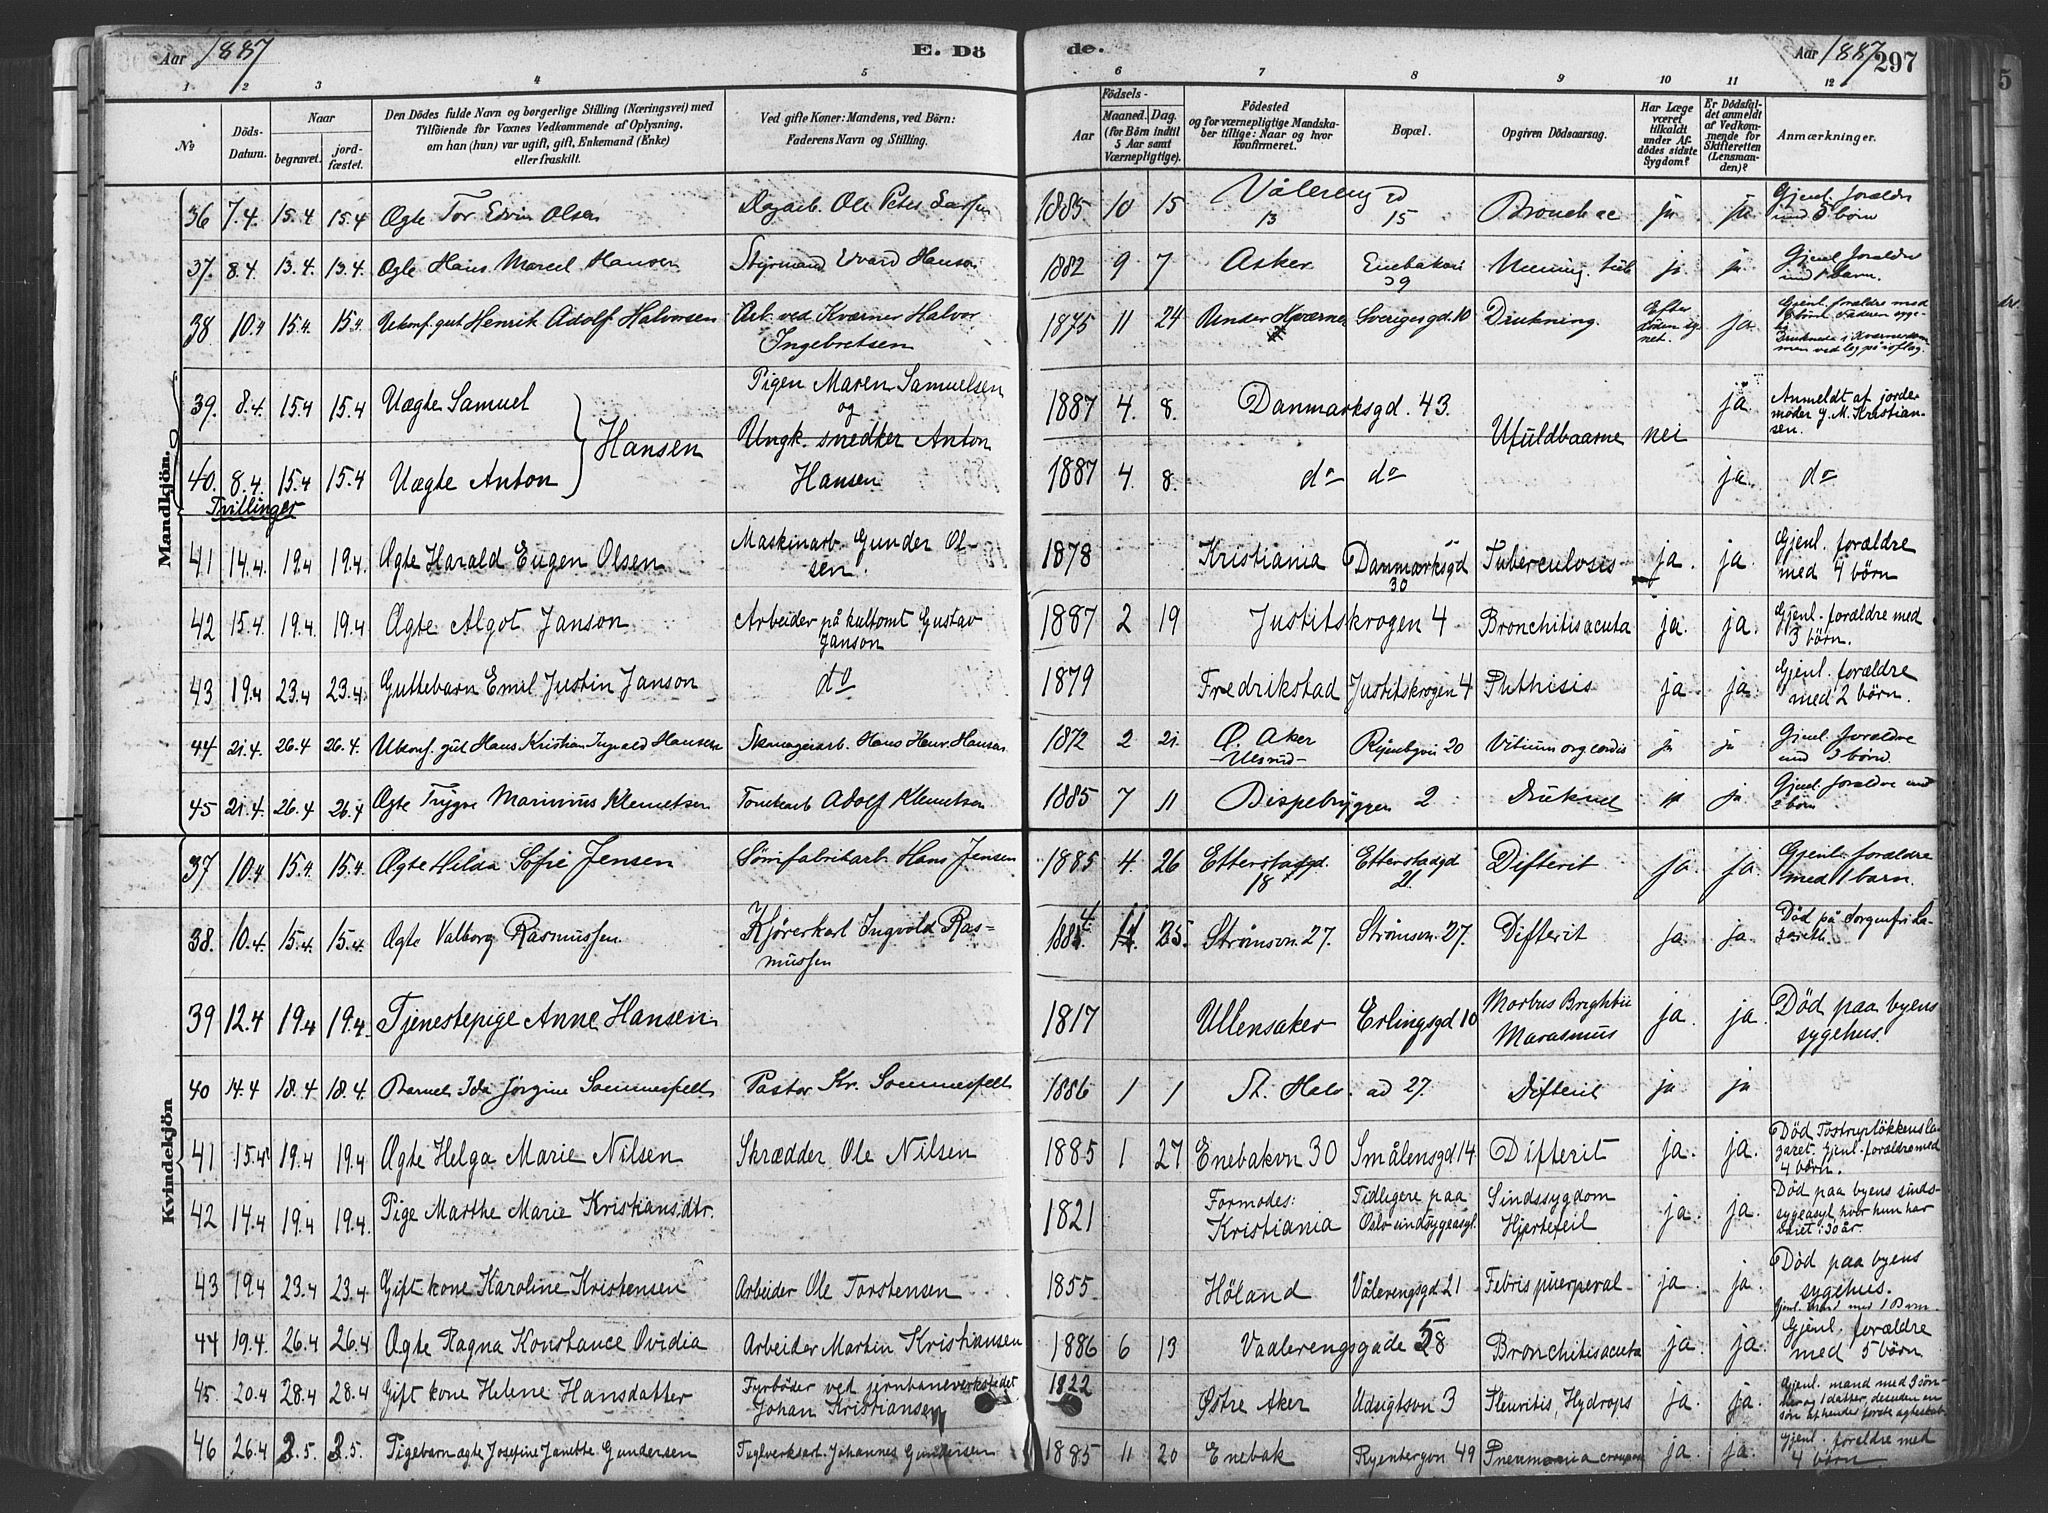 Aar 1887 E. Dö de. Aar 1887 297
1 2 3 4 5 6 7 8 9 10 11 12
No Döds-Datum. Naar begravet. jordfæstet. Den Dödes fulde Navn og borgerlige Stilling (Næringsvei) med Tilföiende for Voxnes Vedkommende af Oplysning, om han (hun) var ugift, gift, Enkemand (Enke) eller fraskilt. Ved gifte Koner: Mandens, ved Börn: Faderens Navn og Stilling. Födsels- Aar Maaned. Dag. (for Börn indtil 5 Aar samt Værnepligtige). Födested og for værnepligtige Mandskaber tillige: Naar og hvor konfirmeret. Bopæl. Opgiven Dödsaarsag. Har Læge været tilkaldt under Afdödes sidste Sygdom? Er Dödsfaldet anmeldt af Vedkommende for Skifteretten (Lensmanden)? Anmærkninger.
Mandkjön.
36 7.4. 15.4 15.4 Ægte Tor Edvin Olsen Dagarb. Ole Peter 1885 10 15 Vålereng 13 15 ja ja Gjenl. foraldre med 5 börn
37. 8.4. 13.4. 13.4. Ægte Hans Marcel Hansen Styrmand Hanson 1882 9 7 Asker 39 ja ja. Gjenl. foraldre med 1 barn.
38 10.4 15.4. 15.4 Ukonf. gut Henrik Adolf Halvorsen Arb. ved Kværner Halvor Ingebretsen 1875 11 24 Under Kværner Sverigesgd. 10 Drukning. Efter net. ja. Gjenl. foraldre med
39. 8.4. 15.4 15.4 Uægte Samuel Hansen Pigen Maren Samuelsen og Ungk. snedker Anton Hansen 1887 4. 8. Danmarksgd. 43. Ufuldbaarne nei ja Anmeldt af jordemoder M. Kristiansen.
40. 8.4. 15.4 15.4 Uægte Anton 1887 4. 8. do do ja. do
Tvillinger
41 14.4. 19.4 19.4. Ægte Harald Eugen Olsen Maskinarb. Gunder Olsen. 1878 Kristiania Danmarksgd 30 Tuberculosis ja. ja. Gjenl. forældre med 4 börn
42 15.4. 19.4. 19.4 Ægte Algot Janson Arbeider på kultomt Gustav Janson 1887 2 19 Justitskrogen 4 Bronchitis acuta ja. ja. Gjenl. forældre med 3 börn.
43 19.4 23.4 23.4. Guttebarn Emil Justin Janson do 1879 Fredrikstad Justitskrogen 4 Phthisis ja. ja. Gjenl. forældre med 2 börn.
44 21.4. 26.4. 26.4. Ukonf. gut Hans Kristian Ingvald Hansen Hans Henr. Hansen 1872 2 21. Ø. Aker Ulsrud 20 Vitium org cordis ja ja Gjenl. forældre med 3 börn.
45 21.4. 26.4 26.4 Ægte Trygve Marinius Klemetsen Adolf Klemetsen 1885 7 11 Bispebryggen 2 Druknet ja ja Gjenl. foraldre med 2 börn
Kvindekjön
37 10.4 15.4. 15.4. Ægte Hilda Sofie Jensen Hans Jensen 1885 4. 26 Etterstadgd. 18 Etterstadgd 21. Difterit ja. ja. Gjenl. forældre med 1 barn.
38. 10.4. 15.4. 15.4. Ægte Valborg Rasmussen. Kjörerkarl Ingvold Rasmussen 1884 11 25. Strömsvn. 27. Strömsvn. 27. Difterit ja. ja. Död på Sorgenfri Lazareth.
39 12.4 19.4 19.4. Tjenestepige Anne Hansen 1817 Ullensaker Erlingsgd 10 Morbus Brightii Marasmus ja. ja. Död paa byens sygehus.
40 14.4 18.4 18.4. Barnet Ida Jörgine Sommerfelt Pastor Kr. Sommerfelt 1886 1 1 St. Halv. ad 27. Difterit ja ja
41 15.4 19.4 19.4 Ægte Helga Marie Nilsen Skrædder Ole Nilsen 1885 1 27 Enebakvn 30 Smålensgd 14 Difterit ja. ja. Död Tostruplökkens Lazaret. Gjenl. forældre med 4 börn.
42 14.4 19.4 19.4. Pige Marthe Marie Kristiansdtr. 1821 Formodes: Kristiania Tidligere paa Oslo sindsygeasyl. Sindssygdom Hjertefeil ja. ja. Död paa byens sindssygeasyl hvor hun har været i 30 år.
43 19.4 23.4 23.4 Gift kone Karoline Kristensen Arbeider Ole Torstensen 1855 Höland Vålerengsgd 21 Febris puerperal. ja ja. Död paa byens sygehus. Gjenl. mand med 1 Barn.
44 19.4. 26.4 26.4 Ægte Ragna Konstance Ovidia Arbeider Martin Kristiansen 1886 6 13 Vaalerengsgade 58 Bronchitis acuta ja. ja. Gjenl. forældre med 5 börn
45 20.4 28.4 28.4 Gift kone Helene Hansdatter Fyrböder ved jernbaneverkstedet Johan Kristiansen 1822 Østre Aker Udsigtsvn 3 Pleuritis, Hydrops ja. ja. Gjenl. mand med 3 sönner og 1 datter, desuden en sön af hendes förste ægteskab.
46 26.4 3.5. 3.5. Pigebarn ægte Josefine Janette Gundersen Teglverksarb. Johannes Gundersen 1885 11 20 Enebak Ryenbergvn 49 Pneumonia crouposa ja. ja. Gjenl. forældre med 4 börn.